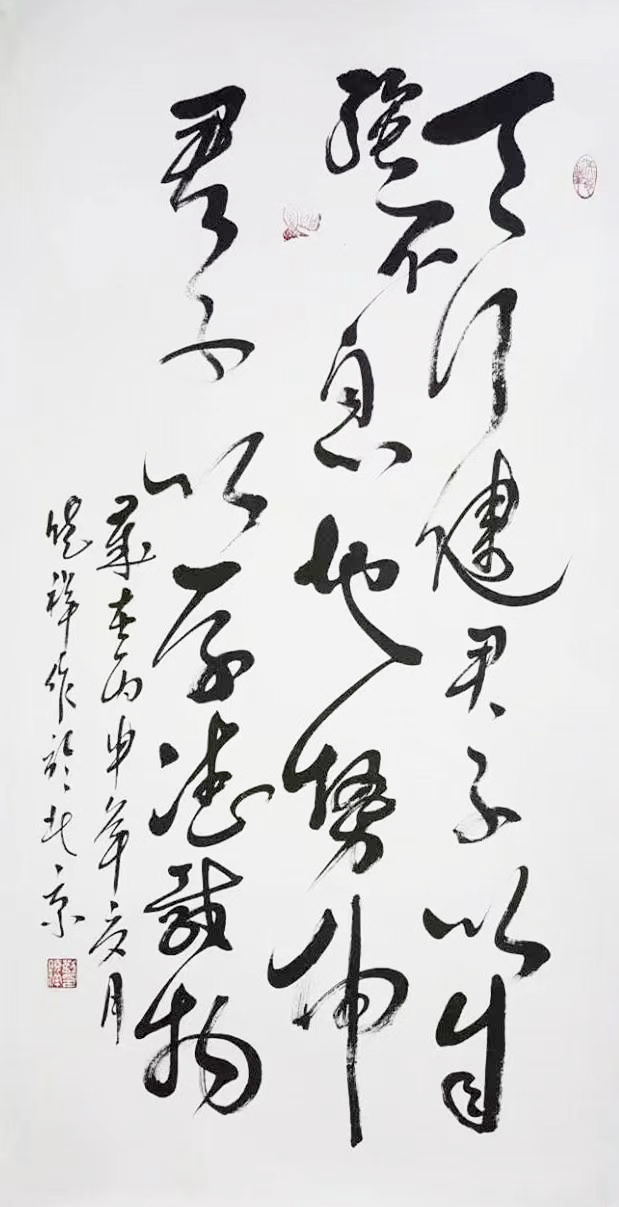 天行健君子以自
强不息地势坤
君子以厚德载物
岁在丙申年亥月
晓祥作于北京